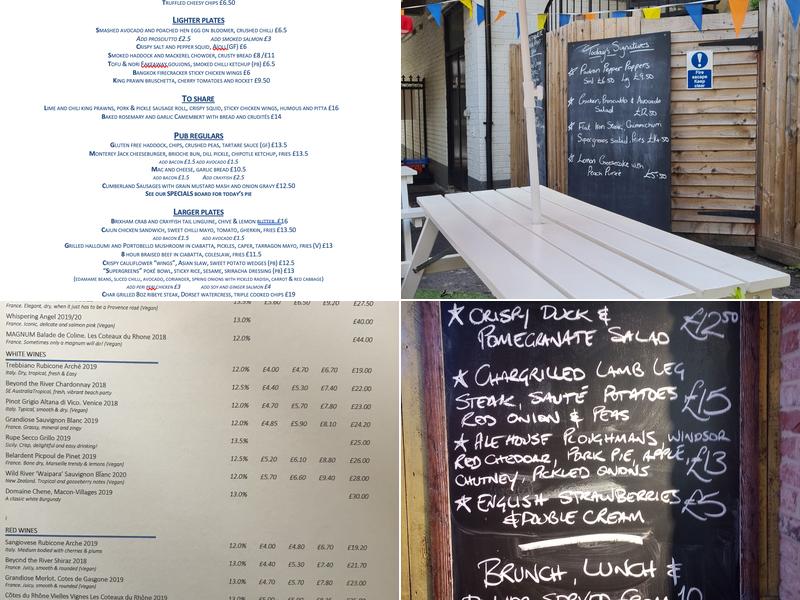 TRUFFLED CHEESY CHIPS £6.50
LIGHTER PLATES
SMASHED AVOCADO AND POACHED HEN EGG ON BLOOMER, CRUSHED CHILLI £6.5
ADD PROSCIUTTO £2.5 ADD SMOKED SALMON £3
CRISPY SALT AND PEPPER SQUID, AIOLI (GF) £6
SMOKED HADDOCK AND MACKEREL CHOWDER, CRUSTY BREAD £8/£11
TOFU & NORI GOUJONS, SMOKED CHILLI KETCHUP (PB) £6.5
BANGKOK FIRECRACKER STICKY CHICKEN WINGS £6
KING PRAWN BRUSCHETTA, CHERRY TOMATOES AND ROCKET £9.50
TO SHARE
LIME AND CHILI KING PRAWNS, PORK & PICKLE SAUSAGE ROLL, CRISPY SQUID, STICKY CHICKEN WINGS, HUMOUS AND PITTA £16
BAKED ROSEMARY AND GARLIC CAMEMBERT WITH BREAD AND CRUDITÉS £14
PUB REGULARS
GLUTEN FREE HADDOCK, CHIPS, CRUSHED PEAS, TARTARE SAUCE (GF) £13.5
MONTEREY JACK CHEESEBURGER, BRIOCHE BUN, DILL PICKLE, CHIPOTLE KETCHUP, FRIES £13.5
ADD BACON £1.5 ADD AVOCADO £1.5
MAC AND CHEESE, GARLIC BREAD £10.5
ADD BACON £1.5 ADD CRAYFISH £2.5
CUMBERLAND SAUSAGES WITH GRAIN MUSTARD MASH AND ONION GRAVY £12.50
SEE OUR SPECIALS BOARD FOR TODAY'S PIE
LARGER PLATES
BRIXHAM CRAB AND CRAYFISH TAIL LINGUINE, CHIVE & LEMON BUTTER £16
CAJUN CHICKEN SANDWICH, SWEET CHILLI MAYO, TOMATO, GHERKIN, FRIES £13.50
ADD BACON £1.5 ADD AVOCADO £1.5
GRILLED HALLOUMI AND PORTOBELLO MUSHROOM IN CIABATTA, PICKLES, CAPER, TARRAGON MAYO, FRIES (V) £13
8 HOUR BRAISED BEEF IN CIABATTA, COLESLAW, FRIES £11.5
CRISPY CAULIFLOWER "WINGS", ASIAN SLAW, SWEET POTATO WEDGES (PB) £12.5
"SUPERGREENS" POKÉ BOWL, STICKY RICE, SESAME, SRIRACHA DRESSING (PB) £13
(EDAMAME BEANS, SLICED CHILLI, AVOCADO, CORIANDER, SPRING ONIONS WITH PICKLED RADISH, CARROT & RED CABBAGE)
ADD PERI CHICKEN £3 ADD SOY AND GINGER SALMON £4
CHAR GRILLED 8OZ RIBEYE STEAK, DORSET WATERCRESS, TRIPLE COOKED CHIPS £19
Today's Signatures
Padron Pepper Poppers
Sml £6.50 Lg £9.50
Chicken, Prosciutto & Avocado
Salad £12.50
Flat Iron Steak, Chimichurri
Supergreens Salad, Fries £14.50
Lemon Cheesecake with
Peach Purée £5.50
Fire
escape
Keep
clear
13.5% £5.60 £6.50 £9.20 £27.50
France. Elegant, dry, when it just has to be a Provence rosé (Vegan)
Whispering Angel 2019/20 13.0% £40.00
France. Iconic, delicate and salmon pink (Vegan)
MAGNUM Balade de Coline. Les Coteaux du Rhone 2018 12.0% £44.00
France. Sometimes only a magnum will do! (Vegan)
WHITE WINES
Trebbiano Rubicone Arché 2019 12.0% £4.00 £4.70 £6.70 £19.00
Italy. Dry, tropical, fresh & Easy
Beyond the River Chardonnay 2018 12.5% £4.40 £5.30 £7.40 £22.00
SE AustraliaTropical, fresh, vibrant beach party
Pinot Grigio Altana di Vico. Venice 2018 12.0% £4.70 £5.70 £7.80 £23.00
Italy. Typical, smooth & dry. (Vegan)
Grandiose Sauvignon Blanc 2019 12.0% £4.85 £5.90 £8.10 £24.20
France. Grassy, mineral and zingy
Rupe Secco Grillo 2019 13.5% £25.00
Sicily. Crisp, delightful and easy drinking!
Belardent Picpoul de Pinet 2019 12.5% £5.20 £6.10 £8.80 £26.00
France. Bone dry, Marseille trendy & lemons (Vegan)
Wild River 'Waipara' Sauvignon Blanc 2020 12.0% £5.70 £6.60 £9.40 £28.00
New Zealand. Tropical and gooseberry notes (Vegan)
Domaine Chene, Macon-Villages 2019 13.0% £30.00
A classic white Burgundy
RED WINES
Sangiovese Rubicone Arche 2019 12.0% £4.00 £4.80 £6.70 £19.20
Italy. Medium bodied with cherries & plums
Beyond the River Shiraz 2018 13.0% £4.40 £5.30 £7.40 £21.70
France. Juicy, smooth & rounded (Vegan)
Grandiose Merlot, Cotes de Gasgone 2019 13.0% £4.70 £5.70 £7.80 £23.00
France. Juicy, smooth & rounded (Vegan)
Côtes du Rhône Vieilles Vignes Les Coteaux du Rhône 2019
CRISPY DUCK & £12.50
POMEGRANATE SALAD
CHARGRILLED LAMB LEG
STEAK, SAUTÉ POTATOES £15
RED ONION & PEAS
ALE HOUSE PLOUGHMANS, WINDSOR
RED CHEDDAR, PORK PIE, APPLE, £13
CHUTNEY, PICKLED ONIONS
ENGLISH STRAWBERRIES £5
& DOUBLE CREAM
BRUNCH, LUNCH &
SERVED FROM 10